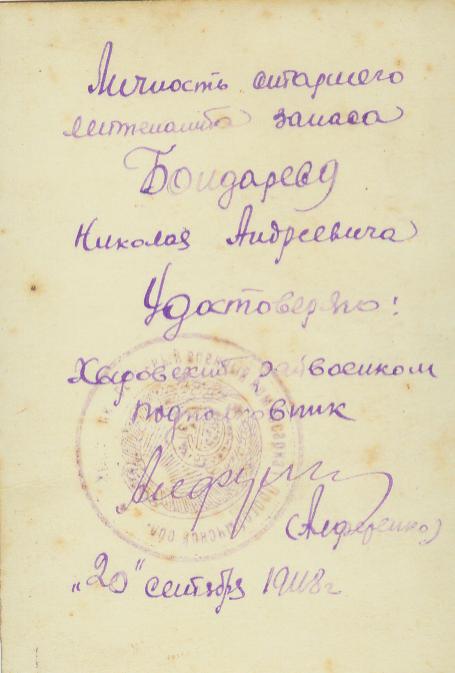 Личность старшего
лейтенанта запаса
Бондарева
Николая Андреевича
Удостоверяю:
Хыровский райвоенком
подполковник
(Алференко)
„20“ сентября 1948 г